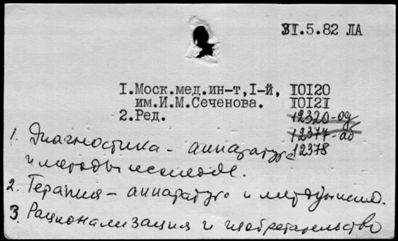 31.5.82 ЛА
1.Моск.мед.ин-т,1-й, 10120
им.И.М.Сеченова. 10121
2.Ред. 12320-од
12377-аб
12378
1. Диагностика - аппаратура
и методы исслед.
2. Терапия - аппаратура и
3. Рационализация и изобретательство